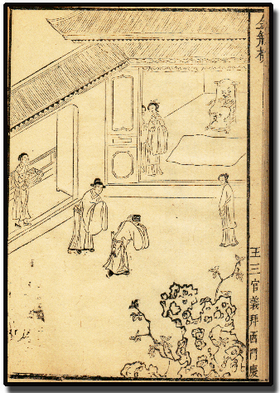 金瓶梅
王三官義拜西門慶